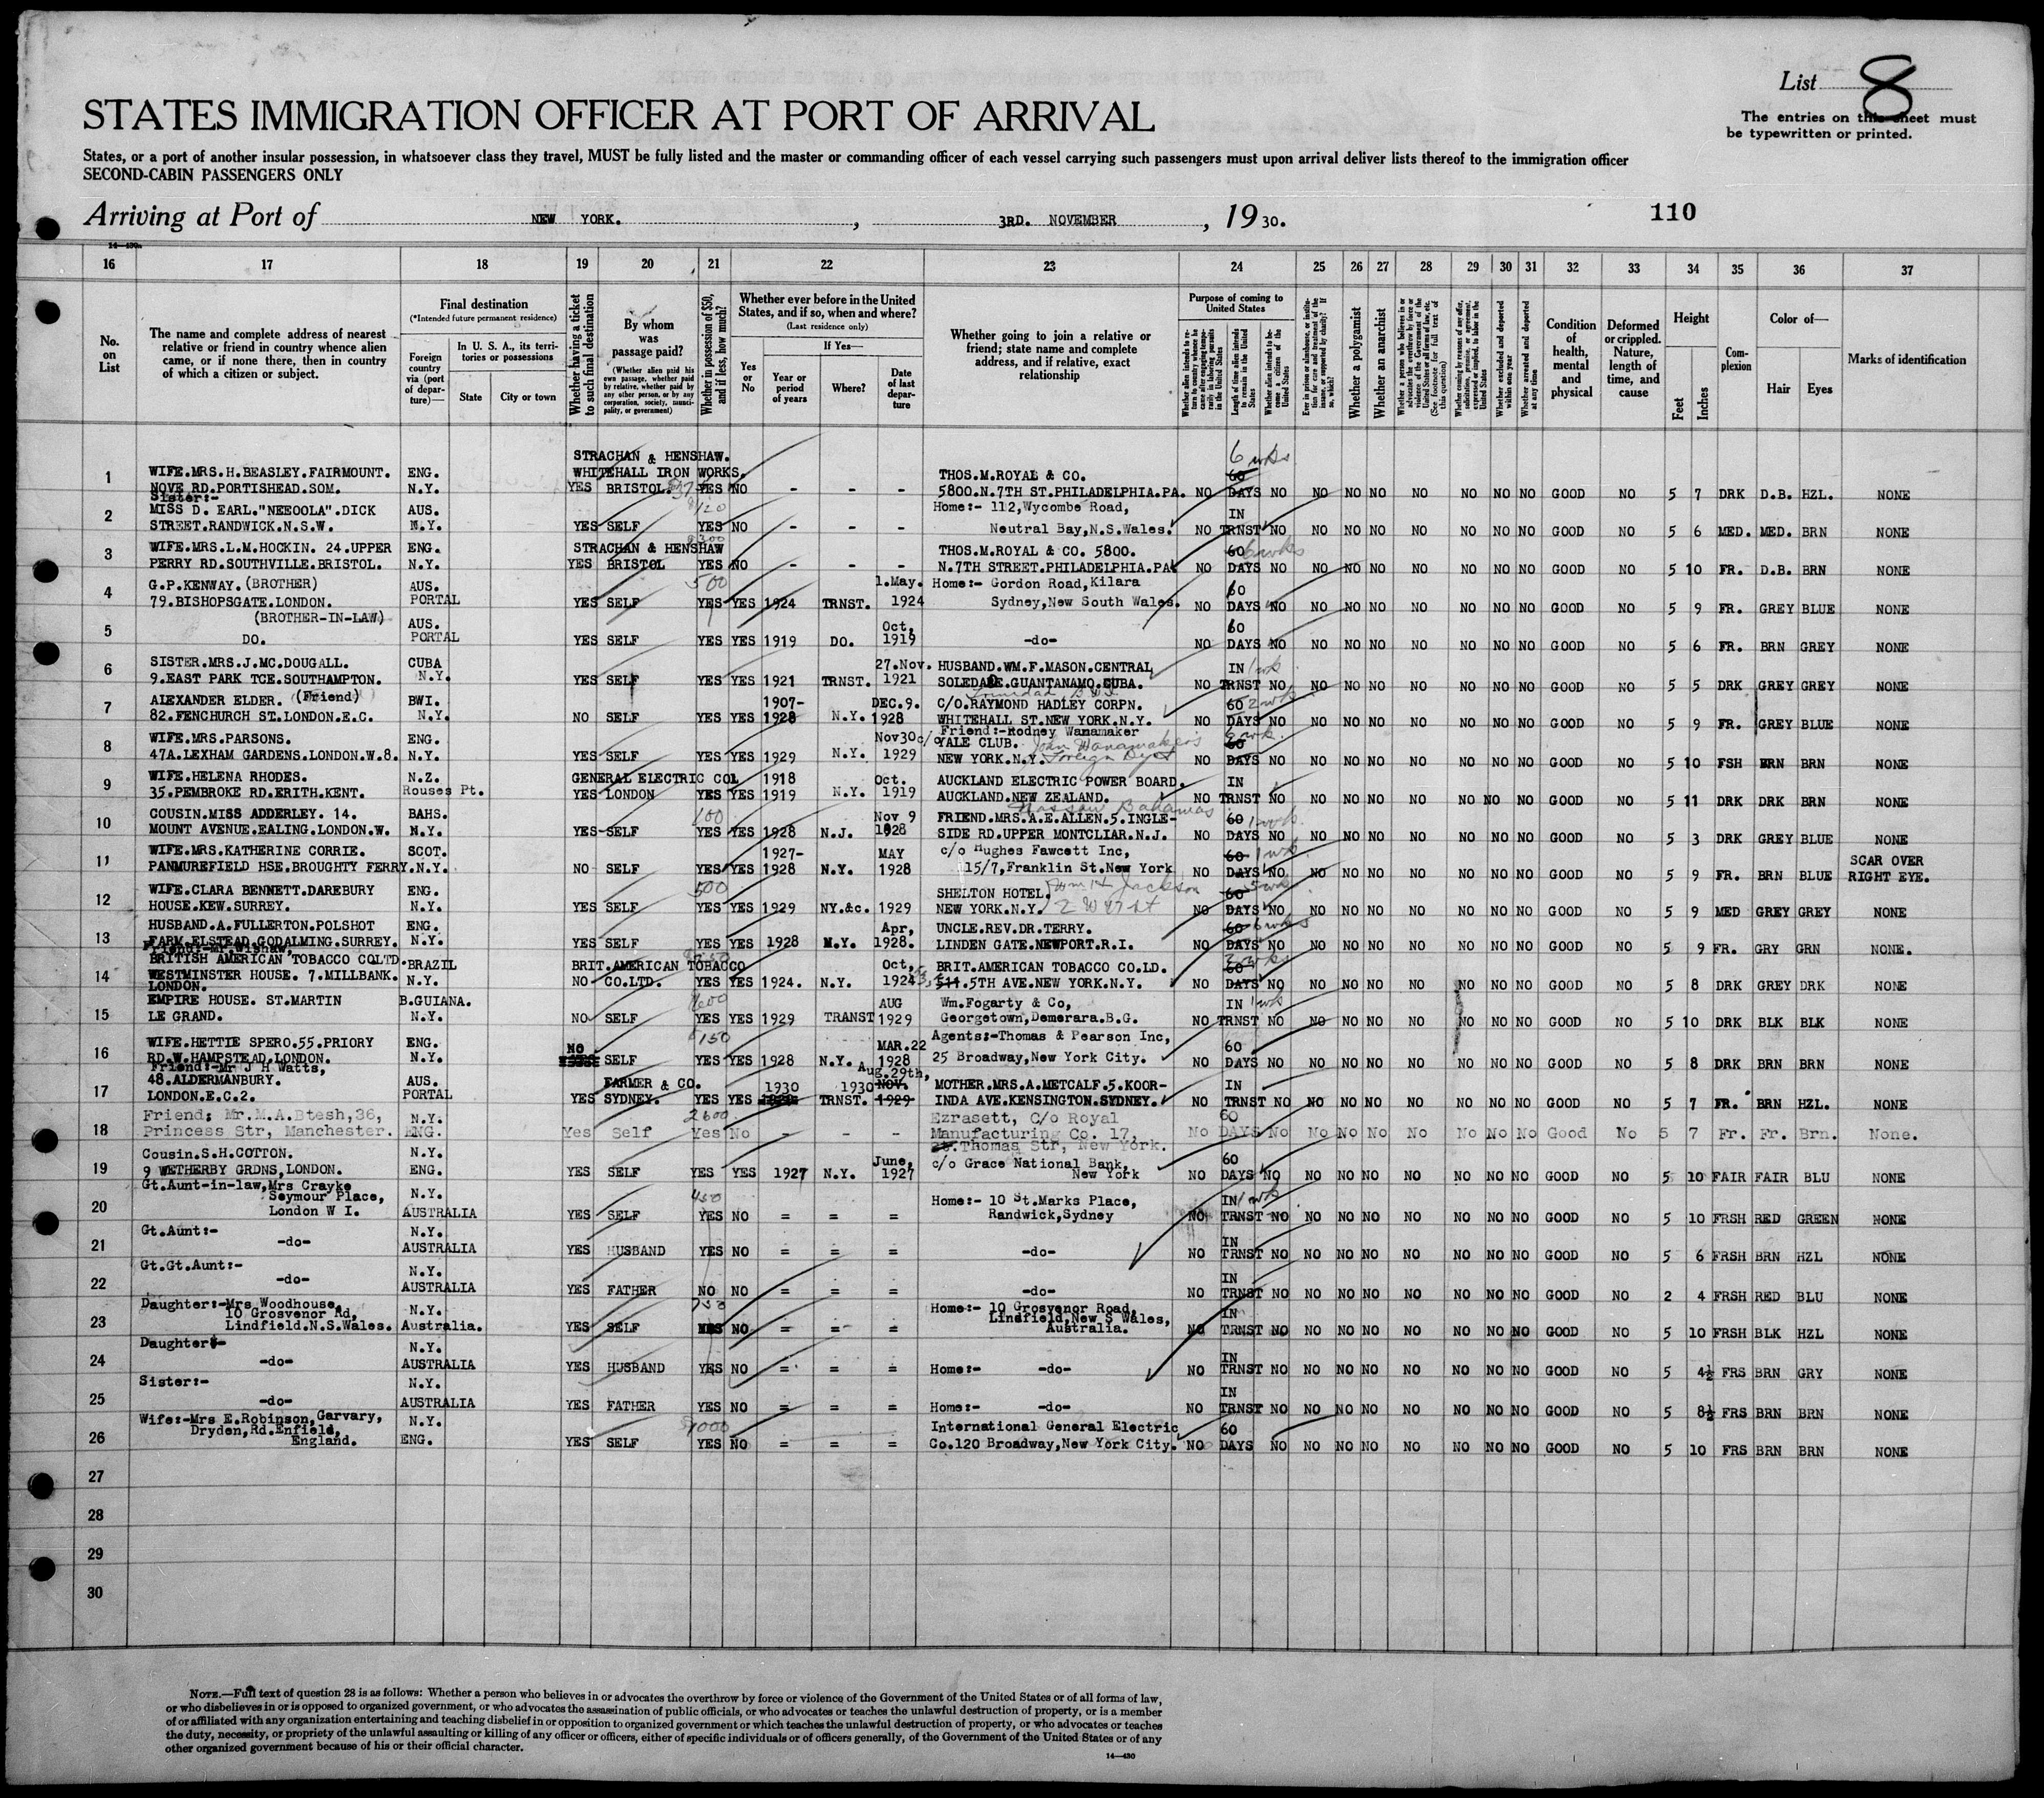 List 8
The entries on this sheet must
be typewritten or printed.
STATES IMMIGRATION OFFICER AT PORT OF ARRIVAL
States, or a port of another insular possession, in whatsoever class they travel, MUST be fully listed and the master or commanding officer of each vessel carrying such passengers must upon arrival deliver lists thereof to the immigration officer
SECOND-CABIN PASSENGERS ONLY
Arriving at Port of NEW YORK. , 3RD. NOVEMBER , 19 30. 110
16 17 18 19 20 21 22 23 24 25 26 27 28 29 30 31 32 33 34 35 36 37
No. on List
The name and complete address of nearest relative or friend in country whence alien came, or if none there, then in country of which a citizen or subject.
Final destination
(*Intended future permanent residence)
Foreign country via (port of departure)—
In U. S. A., its territories or possessions
State City or town
Whether having a ticket to such final destination
By whom was passage paid?
(Whether alien paid his own passage, whether paid by relative, whether paid by any other person, or by any corporation, society, municipality, or government)
Whether in possession of $50, and if less, how much?
Whether ever before in the United States, and if so, when and where?
(Last residence only)
If Yes—
Yes or No
Year or period of years
Where?
Date of last departure
Whether going to join a relative or friend; state name and complete address, and if relative, exact relationship
Purpose of coming to United States
Whether alien intends to return to country whence he came after engaging temporarily in laboring pursuits in the United States
Length of time alien intends to remain in the United States
Whether alien intends to become a citizen of the United States
Ever in prison or almshouse, or institution for care and treatment of the insane, or supported by charity? If so, which?
Whether a polygamist
Whether an anarchist
Whether a person who believes in or advocates the overthrow by force or violence of the Government of the United States or all forms of law, etc. (See footnote for full text of this question)
Whether coming by reason of any offer, solicitation, promise, or agreement, expressed or implied, to labor in the United States
Whether excluded and deported within one year
Whether arrested and deported at any time
Condition of health, mental and physical
Deformed or crippled. Nature, length of time, and cause
Height
Feet Inches
Complexion
Color of—
Hair Eyes
Marks of identification
STRACHAN & HENSHAW. 6 wks
1 WIFE.MRS.H.BEASLEY.FAIRMOUNT. ENG. WHITEHALL IRON WORKS. THOS.M.ROYAL & CO. 60
NOVE RD.PORTISHEAD.SOM. N.Y. YES BRISTOL. YES NO - - - 5800.N.7TH ST.PHILADELPHIA.PA. NO DAYS NO NO NO NO NO NO NO NO GOOD NO 5 7 DRK D.B. HZL. NONE
Sister:-
2 MISS D. EARL."NEEOOLA".DICK AUS. 120 Home:- 112,Wycombe Road, IN
STREET.RANDWICK.N.S.W. N.Y. YES SELF YES NO - - - Neutral Bay,N.S.Wales. NO TRNST NO NO NO NO NO NO NO NO GOOD NO 5 6 MED. MED. BRN NONE
3 WIFE.MRS.L.M.HOCKIN. 24.UPPER ENG. STRACHAN & HENSHAW 300 THOS.M.ROYAL & CO. 5800. 60 6 wks
PERRY RD.SOUTHVILLE.BRISTOL. N.Y. YES BRISTOL YES NO - - - N.7TH STREET.PHILADELPHIA.PA. NO DAYS NO NO NO NO NO NO NO NO GOOD NO 5 10 FR. D.B. BRN NONE
4 G.P.KENWAY.(BROTHER) AUS. 500 1.May. Home:- Gordon Road,Kilara 60
79.BISHOPSGATE.LONDON. PORTAL YES SELF YES YES 1924 TRNST. 1924 Sydney,New South Wales. NO DAYS NO NO NO NO NO NO NO NO GOOD NO 5 9 FR. GREY BLUE NONE
(BROTHER-IN-LAW) AUS. Oct, 60
5 DO. PORTAL YES SELF YES YES 1919 DO. 1919 -do- NO DAYS NO NO NO NO NO NO NO NO GOOD NO 5 6 FR. BRN GREY NONE
6 SISTER.MRS.J.MC.DOUGALL. CUBA 27.Nov. HUSBAND.WM.F.MASON.CENTRAL IN 1 wk.
9.EAST PARK TCE.SOUTHAMPTON. N.Y. YES SELF YES YES 1921 TRNST. 1921 SOLEDADE.GUANTANAMO.CUBA. NO TRNST NO NO NO NO NO NO NO NO GOOD NO 5 5 DRK GREY GREY NONE
Trinidad B.W.I
7 ALEXANDER ELDER. (Friend) BWI. 1907- DEC.9. C/O.RAYMOND HADLEY CORPN. 60 2 wk
82.FENCHURCH ST.LONDON.E.C. N.Y. NO SELF YES YES 1928 N.Y. 1928 WHITEHALL ST.NEW YORK.N.Y. NO DAYS NO NO NO NO NO NO NO NO GOOD NO 5 9 FR. GREY BLUE NONE
Friend:-Rodney Wanamaker
8 WIFE.MRS.PARSONS. ENG. Nov30 c/o YALE CLUB. John Wanamaker's 60 6 wk.
47A.LEXHAM GARDENS.LONDON.W.8. N.Y. YES SELF YES YES 1929 N.Y. 1929 NEW YORK.N.Y. Foreign Dept NO DAYS NO NO NO NO NO NO NO NO GOOD NO 5 10 FSH BRN BRN NONE
9 WIFE.HELENA RHODES. N.Z. GENERAL ELECTRIC COL 1918 Oct. AUCKLAND ELECTRIC POWER BOARD. IN
35.PEMBROKE RD.ERITH.KENT. Rouses Pt. YES LONDON YES YES 1919 N.Y. 1919 AUCKLAND.NEW ZEALAND. NO TRNST NO NO NO NO NO NO NO NO GOOD NO 5 11 DRK DRK BRN NONE
Nassau Bahamas
10 COUSIN.MISS ADDERLEY. 14. BAHS. 100 Nov 9 FRIEND.MRS.A.E.ALLEN.5.INGLE- 60 1 wk.
MOUNT AVENUE.EALING.LONDON.W. N.Y. YES SELF YES YES 1928 N.J. 1928 SIDE RD.UPPER MONTCLIAR.N.J. NO DAYS NO NO NO NO NO NO NO NO GOOD NO 5 3 DRK GREY BLUE NONE
11 WIFE.MRS.KATHERINE CORRIE. SCOT. 1927- MAY c/o Hughes Fawcett Inc, 60 1 wk. SCAR OVER
PANMUREFIELD HSE.BROUGHTY FERRY. N.Y. NO SELF YES YES 1928 N.Y. 1928 15/7,Franklin St.New York NO DAYS NO NO NO NO NO NO NO NO GOOD NO 5 9 FR. BRN BLUE RIGHT EYE.
12 WIFE.CLARA BENNETT.DAREBURY ENG. 500 SHELTON HOTEL. Wm H Jackson 60 5 wk
HOUSE.KEW.SURREY. N.Y. YES SELF YES YES 1929 NY.&c. 1929 NEW YORK.N.Y. NO DAYS NO NO NO NO NO NO NO NO GOOD NO 5 9 MED GREY GREY NONE
13 HUSBAND.A.FULLERTON.POLSHOT ENG. Apr, UNCLE.REV.DR.TERRY. 60 6 wks
FARM.ELSTEAD.GODALMING.SURREY. N.Y. YES SELF YES YES 1928 N.Y. 1928. LINDEN GATE.NEWPORT.R.I. NO DAYS NO NO NO NO NO NO NO NO GOOD NO 5 9 FR. GRY GRN NONE.
Friend:-Mr.Wishaw,
BRITISH AMERICAN TOBACCO COLTD. BRAZIL BRIT.AMERICAN TOBACCO Oct, BRIT.AMERICAN TOBACCO CO.LD. 60
14 WESTMINSTER HOUSE. 7.MILLBANK. N.Y. NO CO.LTD. YES YES 1924. N.Y. 1924 511.5TH AVE.NEW YORK.N.Y. NO DAYS NO NO NO NO NO NO NO NO GOOD NO 5 8 DRK GREY DRK NONE
LONDON.
15 EMPIRE HOUSE. ST.MARTIN B.GUIANA. 600 AUG Wm.Fogarty & Co, IN 1 wk
LE GRAND. N.Y. NO SELF YES YES 1929 TRANST 1929 Georgetown,Demerara.B.G. NO TRNST NO NO NO NO NO NO NO NO GOOD NO 5 10 DRK BLK BLK NONE
16 WIFE.HETTIE SPERO.55.PRIORY ENG. NO 150 MAR.22 Agents:-Thomas & Pearson Inc, 60
RD.W.HAMPSTEAD.LONDON. N.Y. SELF YES YES 1928 N.Y. 1928 25 Broadway,New York City. NO DAYS NO NO NO NO NO NO NO NO GOOD NO 5 8 DRK BRN BRN NONE
Friend:-Mr J H Watts, Aug.29th,
17 48.ALDERMANBURY. AUS. FARMER & CO. 1930 1930 NOV. MOTHER.MRS.A.METCALF.5.KOOR- IN
LONDON.E.C.2. PORTAL YES SYDNEY. YES YES TRNST. 1929 INDA AVE.KENSINGTON.SYDNEY. NO TRNST NO NO NO NO NO NO NO NO GOOD NO 5 7 FR. BRN HZL. NONE
18 Friend: Mr.M.A.Btesh,36, N.Y. 2600 Ezrasett, C/o Royal 60
Princess Str, Manchester. ENG. Yes Self Yes No - - - Manufacturing Co. 17, No DAYS No No No No No No No No Good No 5 7 Fr. Fr. Brn. None.
Thomas Str, New York.
19 Cousin.S.H.COTTON. N.Y. June, c/o Grace National Bank, 60
9 WETHERBY GRDNS,LONDON. ENG. YES SELF YES YES 1927 N.Y. 1927 New York NO DAYS NO NO NO NO NO NO NO NO GOOD NO 5 10 FAIR FAIR BLU NONE
Gt.Aunt-in-law,Mrs Crayke
20 Seymour Place, N.Y. 450 Home:- 10 St.Marks Place, IN 1 wk
London W I. AUSTRALIA YES SELF YES NO = = = Randwick,Sydney NO TRNST NO NO NO NO NO NO NO NO GOOD NO 5 10 FRSH RED GREEN NONE
21 Gt.Aunt:- N.Y. IN
-do- AUSTRALIA YES HUSBAND YES NO = = = -do- NO TRNST NO NO NO NO NO NO NO NO GOOD NO 5 6 FRSH BRN HZL NONE
22 Gt.Gt.Aunt:- N.Y. IN
-do- AUSTRALIA YES FATHER NO NO = = = -do- NO TRNST NO NO NO NO NO NO NO NO GOOD NO 2 4 FRSH RED BLU NONE
Daughter:-Mrs Woodhouse, Home:- 10 Grosvenor Road,
23 10 Grosvenor Rd, N.Y. Lindfield,New S Wales, IN
Lindfield.N.S.Wales. Australia. YES SELF YES NO = = = Australia. NO TRNST NO NO NO NO NO NO NO NO GOOD NO 5 10 FRSH BLK HZL NONE
24 Daughter:- N.Y. IN
-do- AUSTRALIA YES HUSBAND YES NO = = = Home:- -do- NO TRNST NO NO NO NO NO NO NO NO GOOD NO 5 4½ FRS BRN GRY NONE
25 Sister:- N.Y. IN
-do- AUSTRALIA YES FATHER YES NO = = = Home:- -do- NO TRNST NO NO NO NO NO NO NO NO GOOD NO 5 8½ FRS BRN BRN NONE
Wife:-Mrs E.Robinson,Garvary, N.Y. 1000 International General Electric 60
26 Dryden,Rd.Enfield, ENG. YES SELF YES NO = = = Co.120 Broadway,New York City. NO DAYS NO NO NO NO NO NO NO NO GOOD NO 5 10 FRS BRN BRN NONE
England.
27
28
29
30
NOTE.—Full text of question 28 is as follows: Whether a person who believes in or advocates the overthrow by force or violence of the Government of the United States or of all forms of law,
or who disbelieves in or is opposed to organized government, or who advocates the assassination of public officials, or who advocates or teaches the unlawful destruction of property, or is a member
of or affiliated with any organization entertaining and teaching disbelief in or opposition to organized government or which teaches the unlawful destruction of property, or who advocates or teaches
the duty, necessity, or propriety of the unlawful assaulting or killing of any officer or officers, either of specific individuals or of officers generally, of the Government of the United States or of any
other organized government because of his or their official character.
14—430